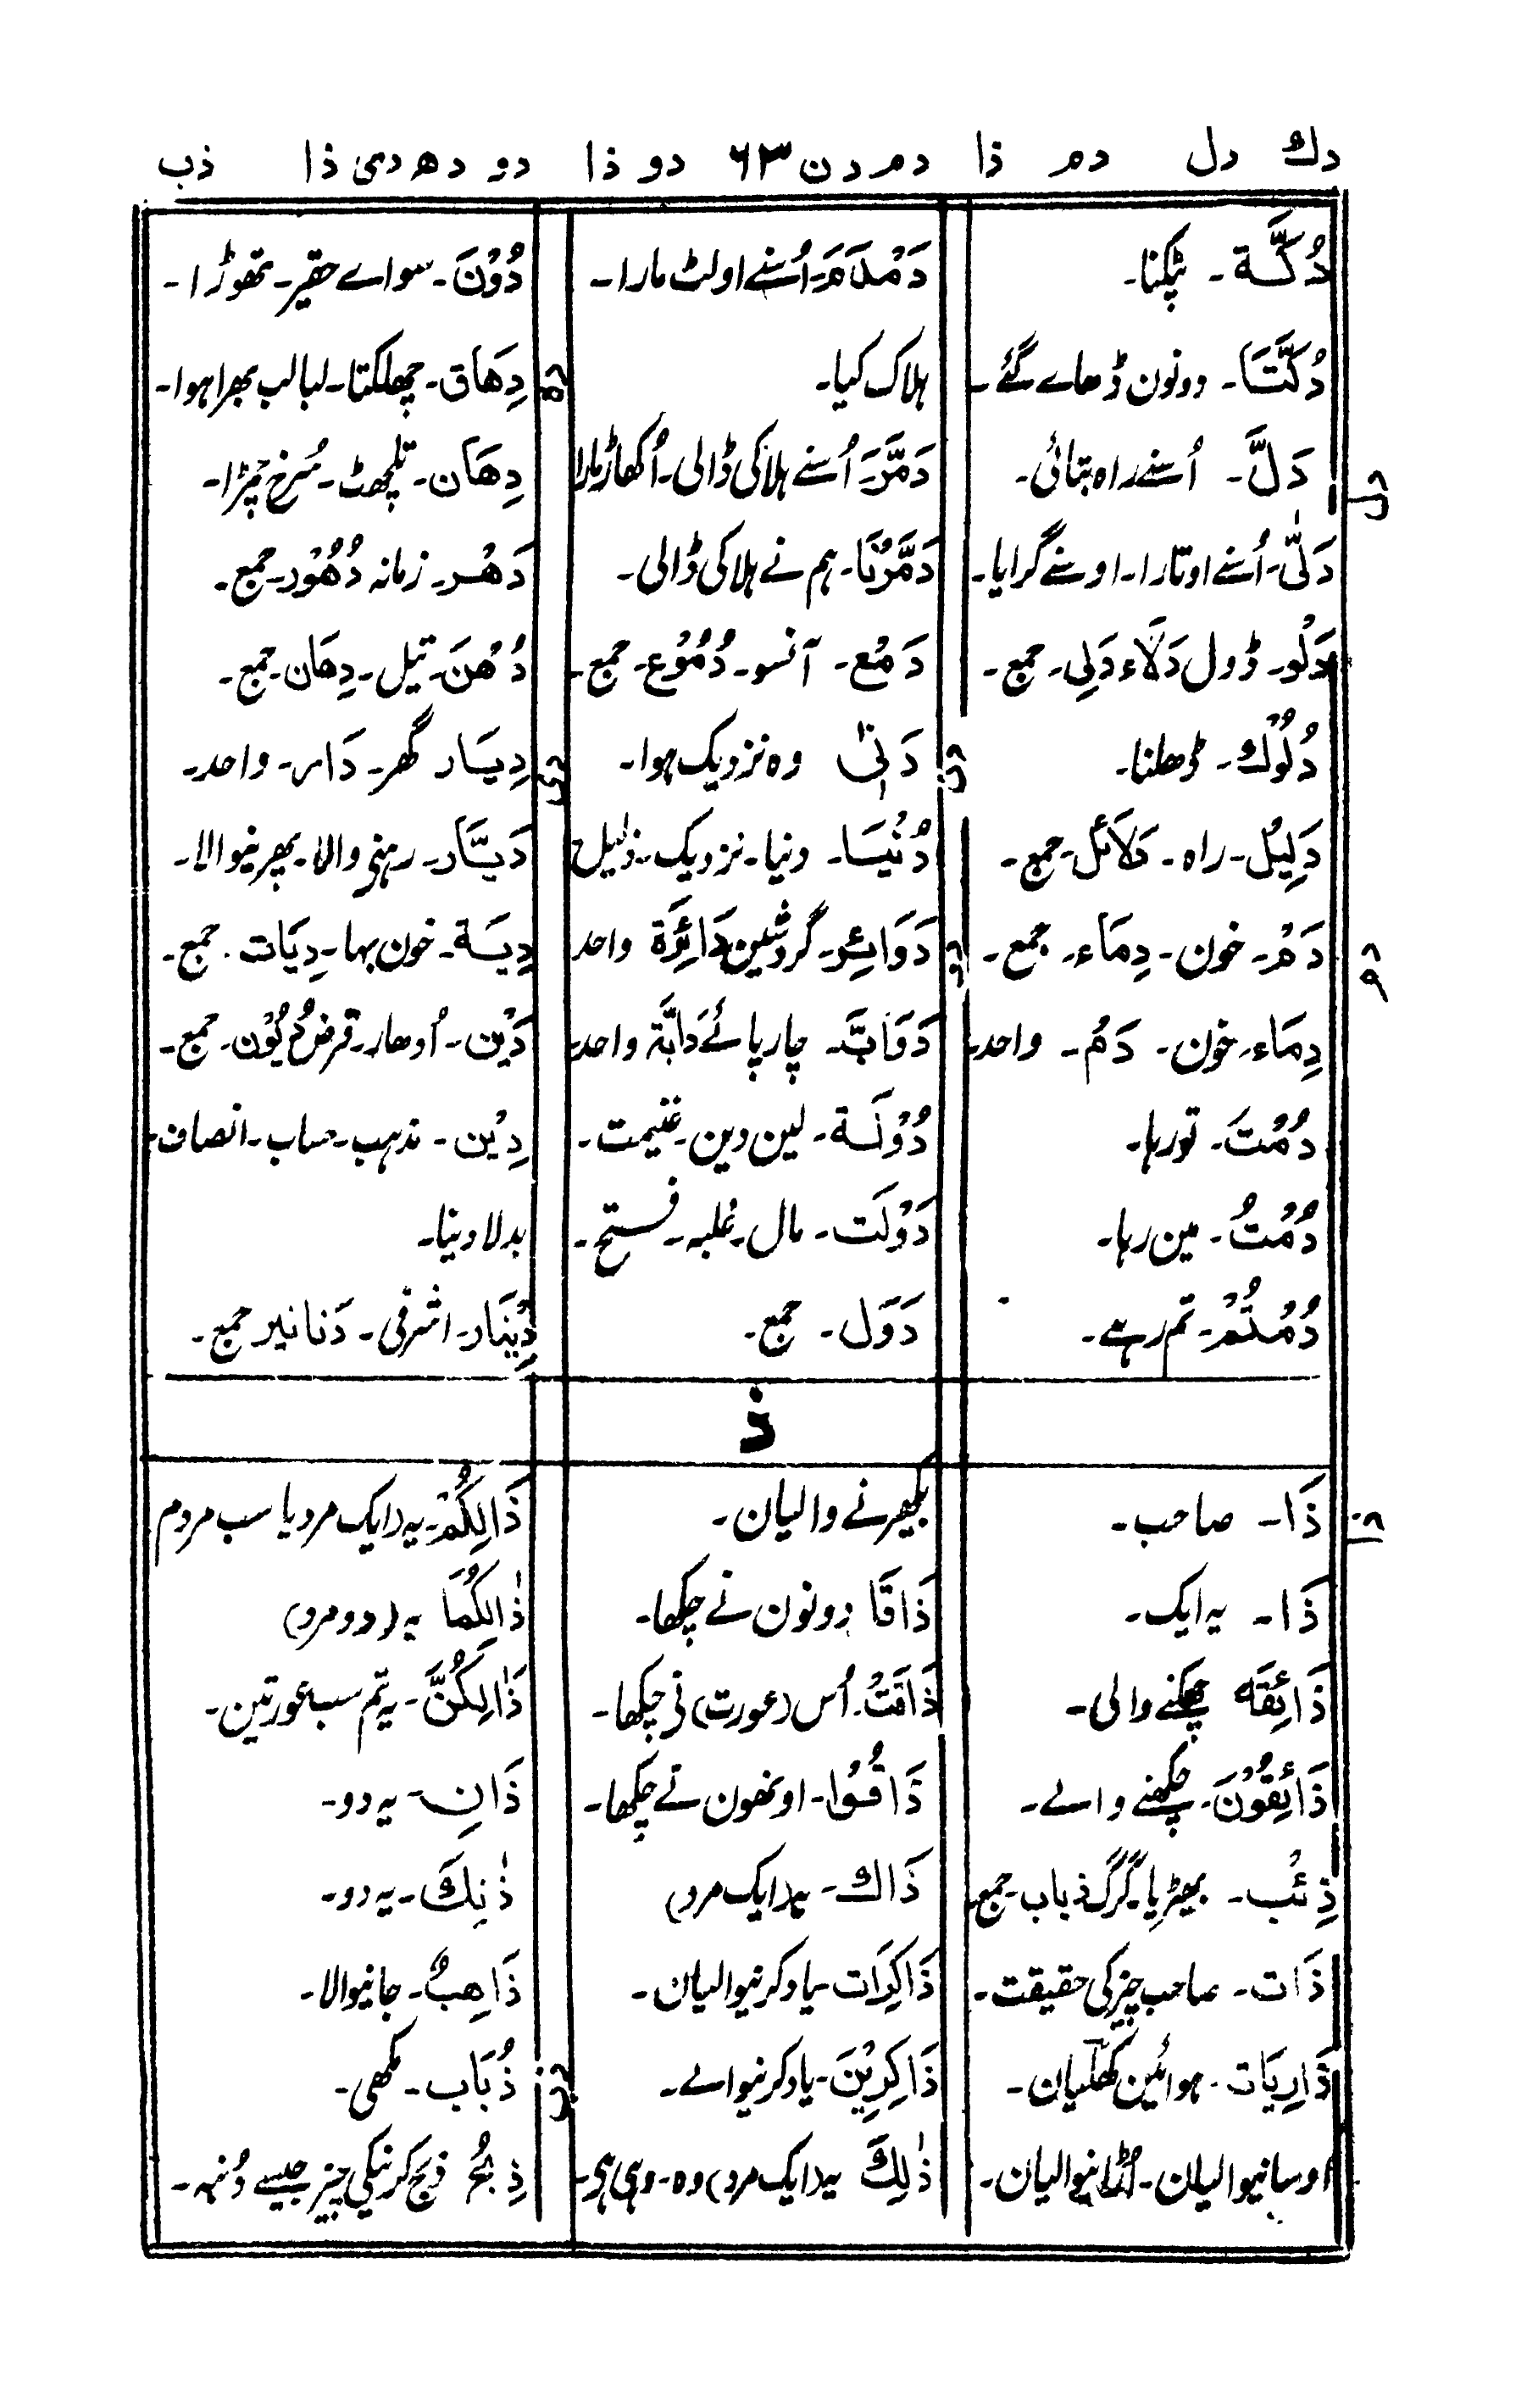 دك دل دم ذا دم دن ۶۳ دو ذا دو دھ دی ذا ذب
دَكَّة۔ پٹکنا۔
دُكَّتَا۔ دونون ڈھاے گئے۔
دل
دَلَّ۔ اُسنے راہ بتائی۔
دَلّٰی۔ اُسنے اوتارا۔ اوسنے گرایا۔
دَلْو۔ ڈول دَلَاء دَلِی۔ جمع۔
دُلُوْك۔ ڈھلنا۔
دَلِیْل۔ راہ۔ دَلَائل۔ جمع۔
دم
دَمْ۔ خون۔ دِمَاء۔ جمع۔
دِمَاء۔ خون۔ دَمْ۔ واحد۔
دُمْتَ۔ تو رہا۔
دُمْتُ۔ مین رہا۔
دُمْتُمْ۔ تم رہے۔
دَمْدَمَ۔ اُسنے اولٹ مارا۔
ہلاک کیا۔
دَمَّرَ۔ اُسنے ہلاکی ڈالی۔ اُکھاڑ مارا
دَمَّرْنَا۔ ہم نے ہلاکی ڈالی۔
دَمْع۔ آنسو۔ دُمُوْع۔ جمع۔
دن
دَنٰی وہ نزدیک ہوا۔
دُنْیَا۔ دنیا۔ نزدیک۔ ذلیل
دو
دَوَائِر۔ گردشین دَائِرَة واحد
دَوَابَّ۔ چارپائے دَابَّة واحد۔
دُوْلَة۔ لین دین۔ غنیمت۔
دَوْلَت۔ مال۔ غلبہ۔ فستح۔
دَوَل۔ جمع۔
دُوْنَ۔ سواے حقیر۔ تھوڑا۔
دہ
دِھَاق۔ چھلکتا۔ لبالب بھرا ہوا۔
دِھَان۔ تلچھٹ۔ سُرخ چمڑا۔
دَھْر۔ زمانہ دُھُوْر۔ جمع۔
دُھْنَ۔ تیل۔ دِھَان۔ جمع۔
دی
دِیَار گھر۔ دَار۔ واحد۔
دَیَّار۔ رہنی والا۔ پھرنیوالا۔
دِیَة۔ خون بہا۔ دِیَات۔ جمع۔
دَیْن۔ اُودھار۔ قرض دُیُوْن۔ جمع۔
دِیْن۔ مذہب۔ حساب۔ انصاف۔
بدلا دینا۔
دِیْنَار۔ اشرفی۔ دَنَانیر جمع۔
ذ
ذا
ذَا۔ صاحب۔
ذَا۔ یہ ایک۔
ذَائِقَه چکھنے والی۔
ذَائِقُوْنَ۔ چکھنے والے۔
ذِئْب۔ بھیڑیا۔ گرگ ذباب۔ جمع۔
ذَات۔ صاحب چیز کی حقیقت۔
ذَارِیَات۔ ہوائین کھلیان۔
اوسانیوالیان۔ اُڑانیوالیان۔
بکھیرنے والیان۔
ذَاقَا دونون نے چکھا۔
ذَاقَتْ۔ اُس (عورت) نی چکھا۔
ذَاقُوْا۔ اونھون نے چکھا۔
ذَاك۔ یہ (ایک مرد)
ذَاكِرَات۔ یاد کرنیوالیان۔
ذَاكِرِیْنَ۔ یاد کرنیوالے۔
ذٰلِكَ یہ (ایک مرد) وہ۔ وہی ہی۔
ذَالِكُمْ۔ یہ (ایک مرد یا سب مردم
ذٰالِكُمَا یہ (دو مرد)
ذَالِكُنَّ۔ یہ تم سب عورتین۔
ذَانِ۔ یہ دو۔
ذٰنِكَ۔ یہ دو۔
ذَاهِبٌ۔ جانیوالا۔
ذب
ذُبَاب۔ مکھی۔
ذِبْحٌ ذبح کرنیکی چیز جیسے دُنبہ۔